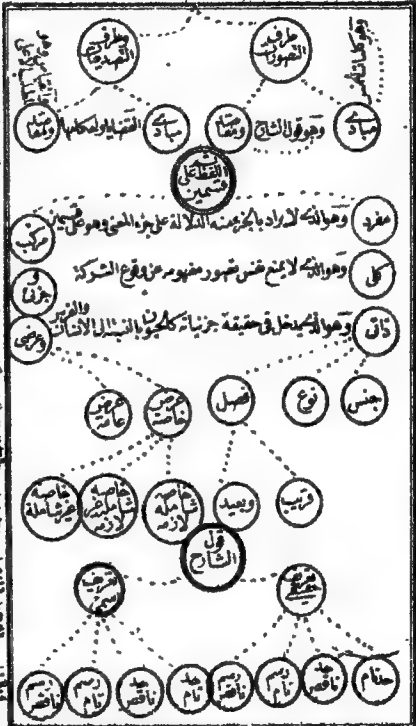 طرف التصورات
وطرف التصديقات
مبادئ
وهو قول الشارح
ومقاصد
مبادئ
القضايا واحكامها
ومقاصد
ثم اللفظ على قسمين
مفرد
وهو الذى لا يراد بالجزء منه الدلالة على جزء المعنى وهو على قسمين
مركب
كلى
وهو الذى لا يمنع نفس تصور مفهومه عن وقوع الشركة
وجزئى
ذاتى
وهو الذى يدخل فى حقيقة جزئياته كالحيوان بالنسبة الى الانسان والفرس
وعرضى
جنس
نوع
فصل
عرض خاصة
عرض عامة
قريب
وبعيد
خاصة شاملة لازمة
خاصة شاملة غير لازمة
خاصة غير شاملة
قول الشارح
تعريف
تعريف
حد تام
حد ناقص
رسم تام
رسم ناقص
حد تام
حد ناقص
رسم تام
رسم ناقص